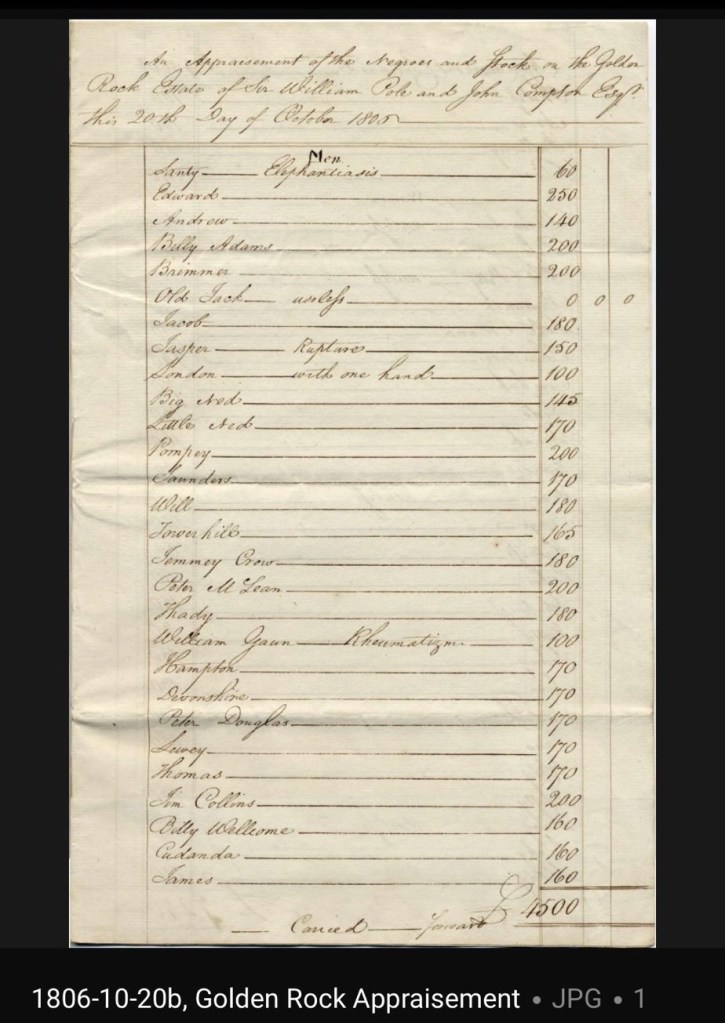 An Appraisement of the Negroes and Stock on the Golden
Rock Estate of Sir William Pole and John Compton Esqrs
this 20th Day of October 1806
Men
Santy Elephantiasis 60
Edward 250
Andrew 140
Billy Adams 200
Brimmer 200
Old Jack useless 0 0 0
Jacob 180
Jasper Rupture 150
London with one hand 100
Big Ned 145
Little Ned 170
Pompey 200
Saunders 170
Will 180
Towerhill 165
Jemmey Crow 180
Peter McLean 200
Thady 180
William Gaun Rheumatizm 100
Hampton 170
Devonshire 170
Peter Douglas 170
Sewey 170
Thomas 170
Jim Collins 200
Billy Wellcome 160
Cudanda 160
James 160
Carried Forward £ 4500
1806-10-20b, Golden Rock Appraisement • JPG • 1